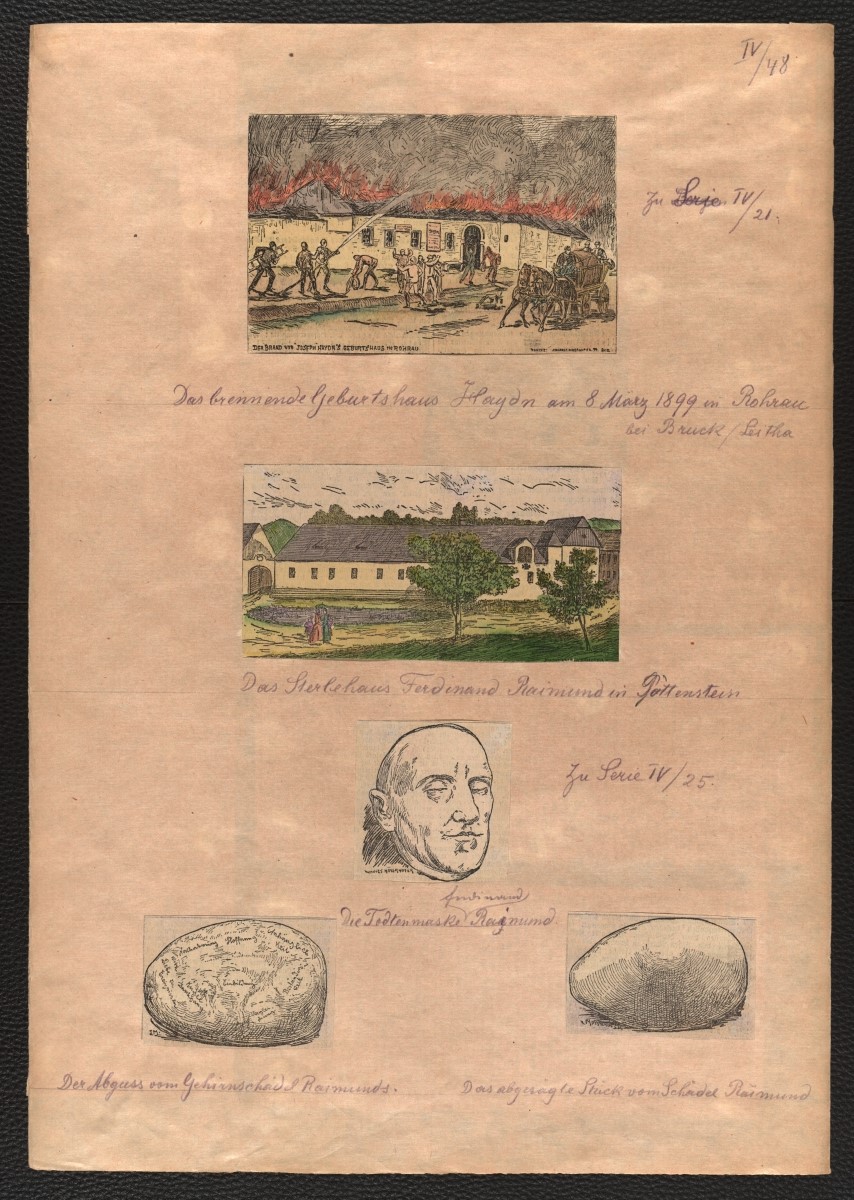 IV/48
Zu Serie IV/21.
DER BRAND VON JOSEPH HAYDN'S GEBURTSHAUS IN ROHRAU
Das brennende Geburtshaus Haydn am 8 März 1899 in Rohrau
bei Bruck/Leitha
Das Sterbehaus Ferdinand Raimund in Pottenstein
Zu Serie IV/25.
Ferdinand
Die Todtenmaske Raimund.
Hoffnung
Der Abguss vom Gehirnschädel Raimunds.
Das abgesagte Stück vom Schädel Raimund